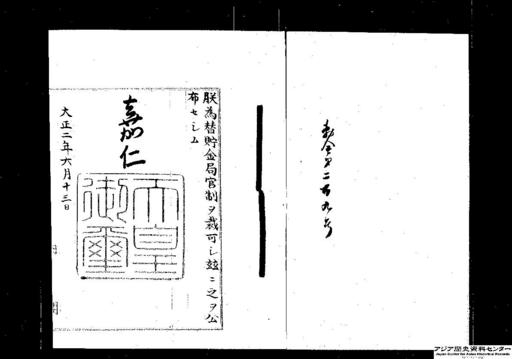 勅令第二百九号
朕為替貯金局官制ヲ裁可シ玆ニ之ヲ公
布セシム
嘉仁
天皇
御璽
大正二年六月十三日
アジア歴史資料センター
Japan Center for Asian Historical Records